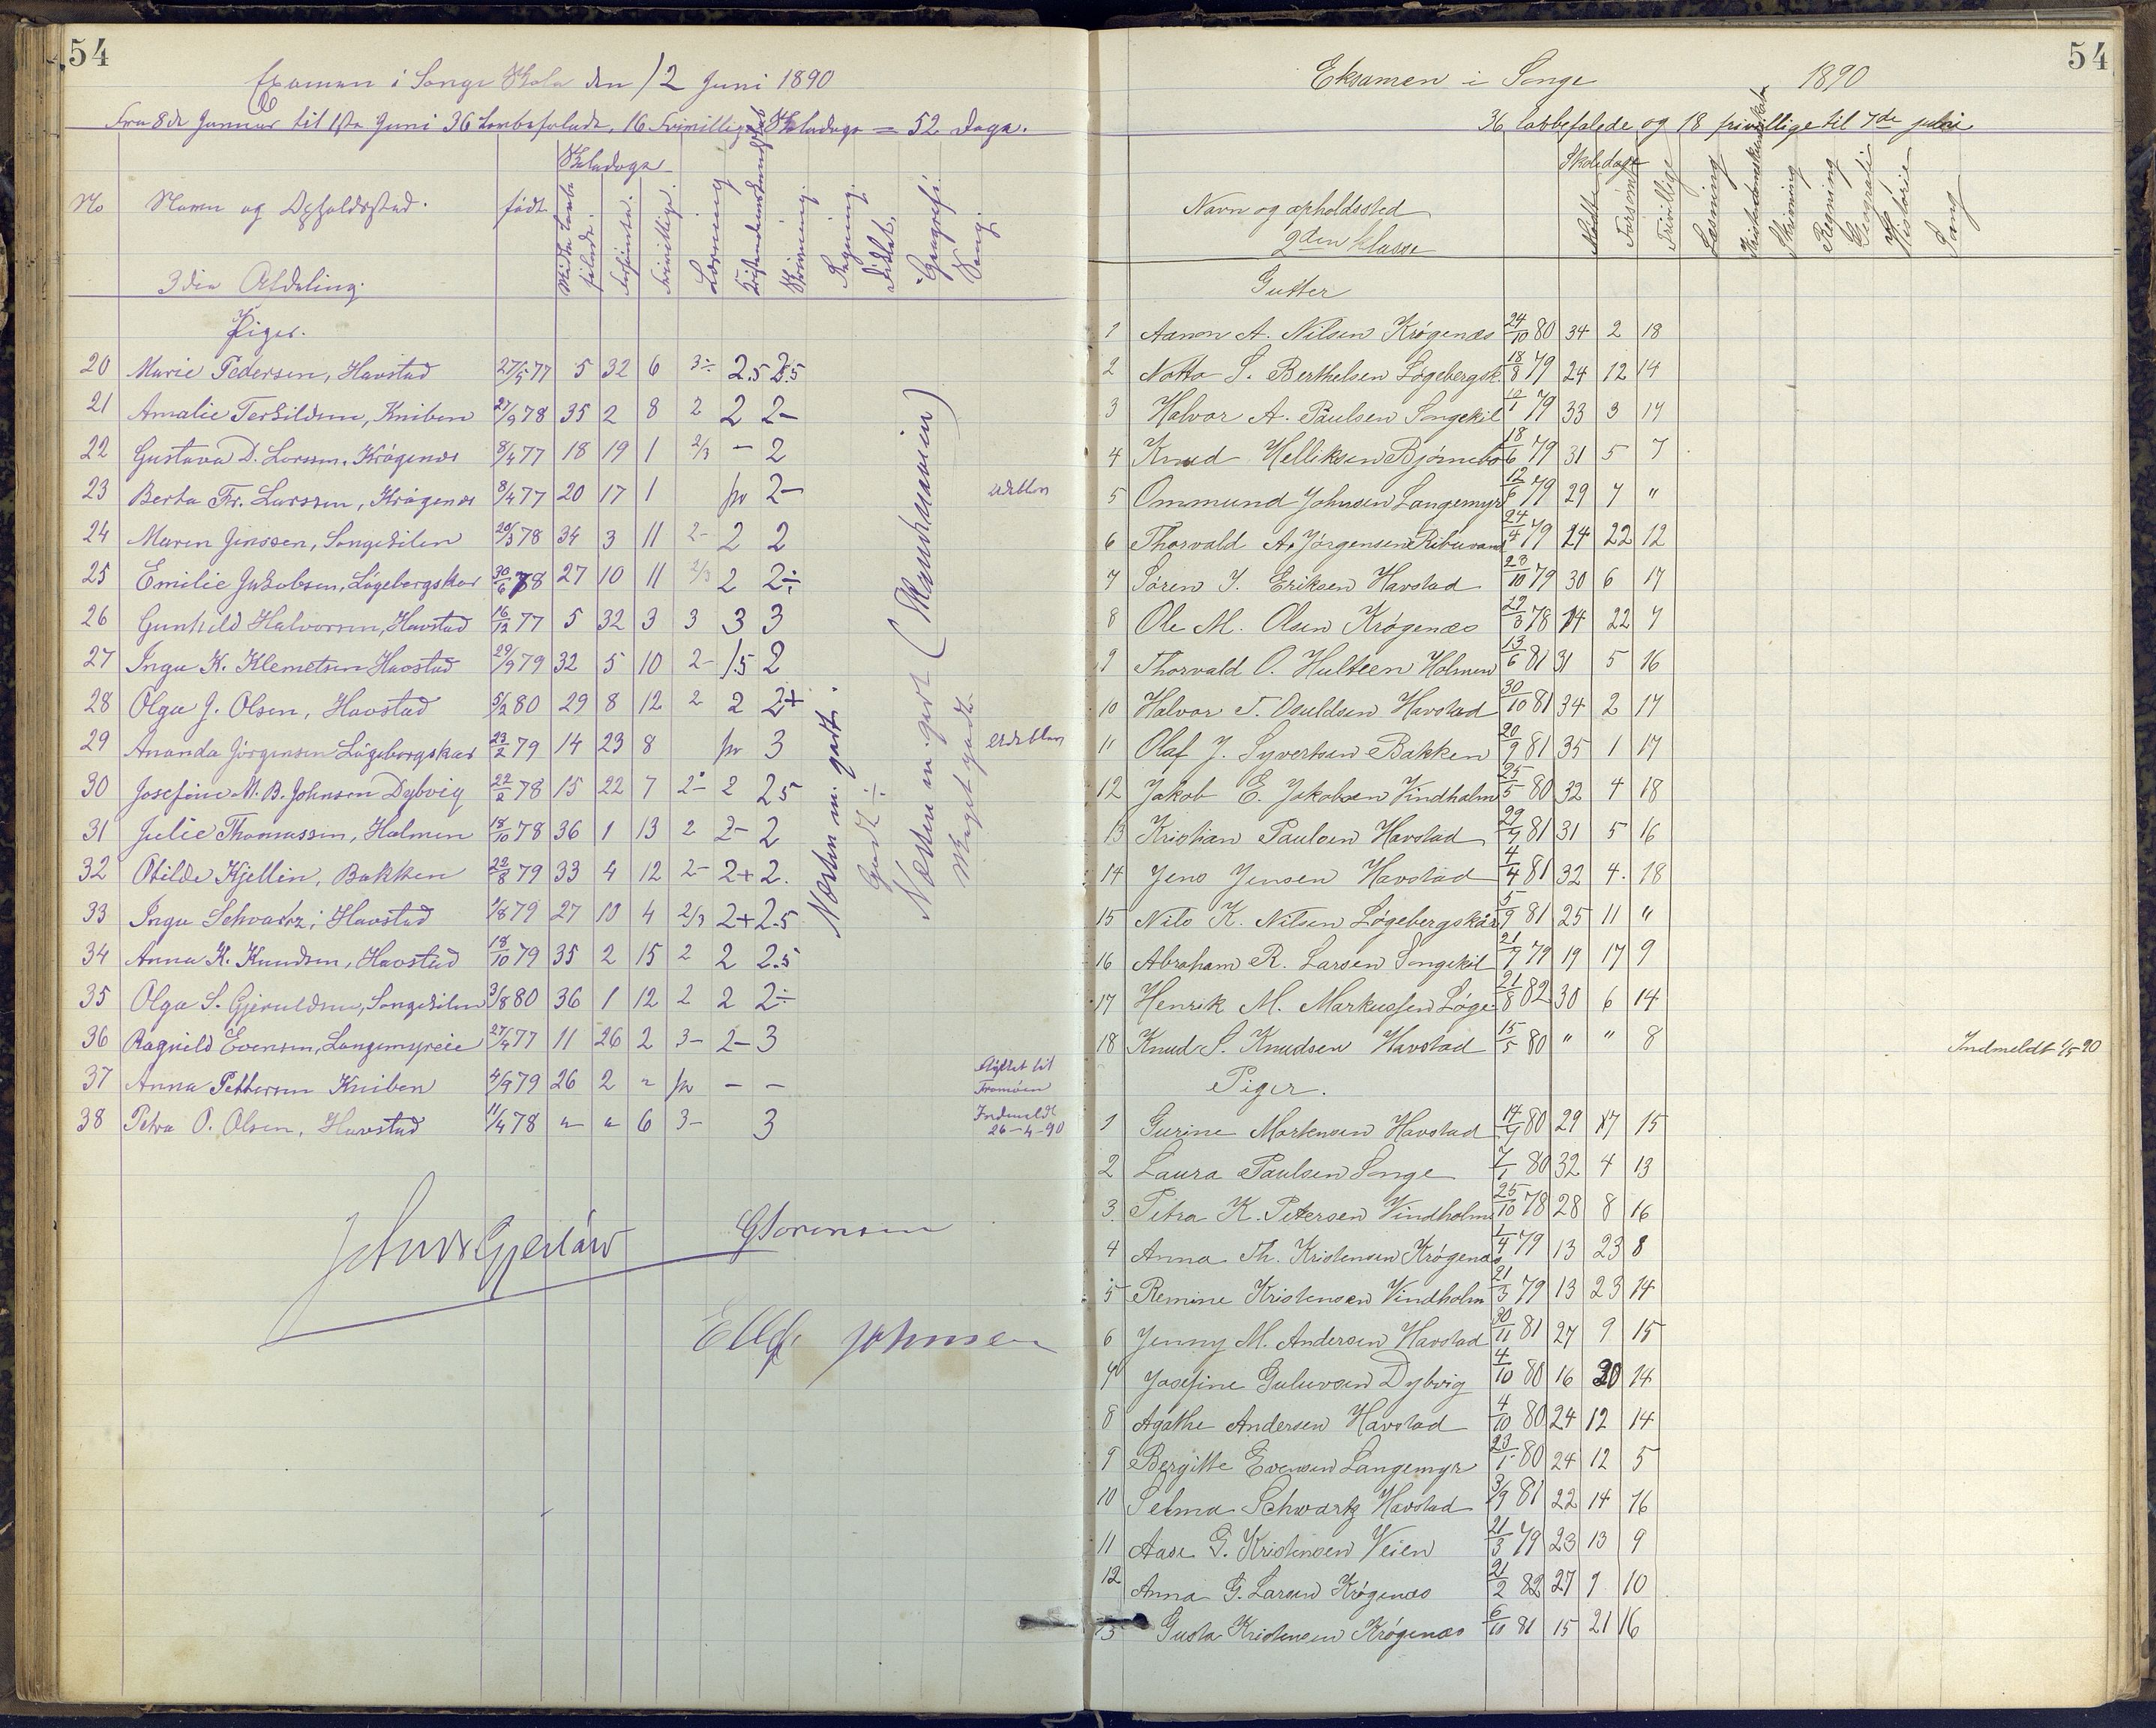 54
Examen i Songe Skole den 12 Juni 1890
Fra 8de Januar til 1ste Juni 36 Lovbefalede, 16 Frivillige Skoledage = 52 Dage.
Skoledage
No Navn og Opholdssted. født Mødte lovbefalede. Forsømte. Frivillige. Læsning Kristendomskundskab Skrivning. Regning. Diktat. Geografi. Sang.
3die Afdeling.
Piger.
20 Marie Pedersen, Havstad 27/5 77 5 32 6 3÷ 2.5 2.5
21 Amalie Terkildsen, Kniben 27/9 78 35 2 8 2 2 2-
22 Gustava D. Larssen, Krøgenes 8/4 77 18 19 1 2/3 - 2
23 Berta Fr. Larssen, Krøgenes 8/4 77 20 17 1 2-
24 Maren Jenssen, Songekilen 20/3 78 34 3 11 2- 2 2
25 Emilie Jakobsen, Løgebergskar 30/6 78 27 10 11 2/3 2 2÷
26 Gunhild Halvorsen, Havstad 16/12 77 5 32 3 3 3 3
27 Inga K. Klemetsen Havstad 29/9 79 32 5 10 2- 1.5 2
28 Olga J. Olsen, Havstad 5/2 80 29 8 12 2 2 2+
29 Ananda Jörgensen Lögebergskar 23/2 79 14 23 8 3
30 Josefine M. B. Johnsen Dybvig 22/2 78 15 22 7 2- 2 2.5
31 Julie Thomassen, Holmen 18/10 78 36 1 13 2 2- 2
32 Otilde Kjellin, Bakken 22/8 79 33 4 12 2- 2+ 2.
33 Inga Schvartz, Havstad 1/8 79 27 10 4 2/3 2+ 2.5
34 Anna K. Knudsen, Havstad 18/10 79 35 2 15 2 2 2.5
35 Olga S. Gjeruldsen, Songekilen 3/8 80 36 1 12 2 2 2÷
36 Ragnild Evensen, Langemyreie 27/4 77 11 26 2 3- 2- 3
37 Anna Pettersen Kniben 4/9 79 26 2 " - - Flyttet til Tromøen
38 Petra O. Olsen, Havstad 11/4 78 " " 6 3- 3 Indmeldt 26-4-90
Næsten m. godt.
Godt ÷
Næsten m. godt
Meget godt
G Sorensen
Johnsen
54
Eksamen i Songe 1890
36 lovbefalede og 18 frivillige til 7de juni
Skoledage
Navn og opholdssted Mødte Forsømte Frivillige Læsning Kristendomskundskab Skrivning Regning Geografi Historie Sang
2den klasse
Gutter
1 Aanon A. Nilsen Krøgenæs 24/10 80 34 2 18
2 Notto S. Berthelsen Løgebergsk. 18/8 79 24 12 14
3 Halvor A. Paulsen Songekil 79 33 3 17
4 Knud Helliksen Bjørnebo 18/6 79 31 5 7
5 Ommund Johnsen Langemyr 12/6 79 29 7 "
6 Thorvald A. Jørgensen 24/4 79 14 22 12
7 Søren J. Eriksen Havstad 28/10 79 30 6 17
8 Ole M. Olsen Krøgenæs 29/3 78 14 22 7
9 Thorvald O. Hulteen Holmen 13/6 81 31 5 16
10 Halvor T. Osuldsen Havstad 30/10 81 34 2 17
11 Olaf J. Syvertsen Bakken 20/9 81 35 1 17
12 Jakob E. Jakobsen Vindholm 25/5 80 32 4 18
13 Kristian Paulsen Havstad 29/7 81 31 5 16
14 Jens Jensen Havstad 4/4 81 32 4 18
15 Nils K. Nilsen Løgebergskår 5/9 81 25 11 "
16 Abraham R. Larsen Songekil 21/7 79 19 17 9
17 Henrik M. Markussen Løge. 21/8 82 30 6 14
18 Knud S. Knudsen Havstad 15/5 80 " " 8 Indmeldt 1/5 90
Piger.
1 Gurine Mortensen Havstad 14/9 80 29 7 15
2 Laura Paulsen Songe 7/1 80 32 4 13
3. Petra K. Petersen Vindholm 25/10 78 28 8 16
4 Anna Th. Kristensen Krøgenæs 1/4 79 13 23 8
5 Remine Kristensen Vindholm 21/3 79 13 23 14
6 Jenny M. Andersen Havstad 30/11 81 27 9 15
7 Josefine Guluvsen Dybvig 4/10 80 16 20 14
8 Agathe Andersen Havstad 4/10 80 24 12 14
9 Bergitte Evensen Langemyr 23/1 80 24 12 5
10 Selma Schwartz Havstad 3/9 81 22 14 16
11 Aase G. Kristensen Veien 21/3 79 23 13 9
12 Anna G. Larsen Krøgenæs 21/2 82 27 9 10
13 Gusta Kristensen Krøgenæs 6/10 81 15 21 16